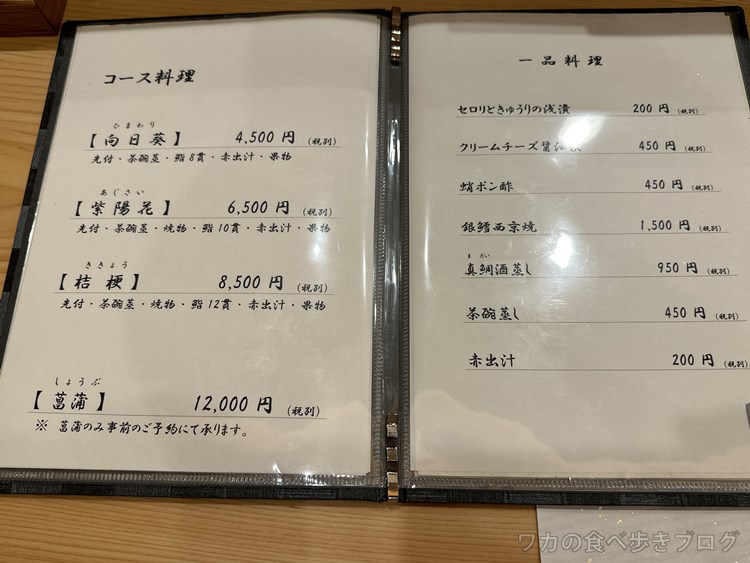 コース料理
ひまわり
【向日葵】 4,500円 (税別)
先付・茶碗蒸・鮨8貫・赤出汁・果物
あじさい
【紫陽花】 6,500円 (税別)
先付・茶碗蒸・焼物・鮨10貫・赤出汁・果物
ききょう
【桔梗】 8,500円 (税別)
先付・茶碗蒸・焼物・鮨12貫・赤出汁・果物
しょうぶ
【菖蒲】 12,000円 (税別)
※ 菖蒲のみ事前のご予約にて承ります。
一品料理
セロリときゅうりの浅漬 200円 (税別)
クリームチーズ醤油漬 450円 (税別)
蛸ポン酢 450円 (税別)
銀鱈西京焼 1,500円 (税別)
まだい
真鯛酒蒸し 950円 (税別)
茶碗蒸し 450円 (税別)
赤出汁 200円 (税別)
ワカの食べ歩きブログ